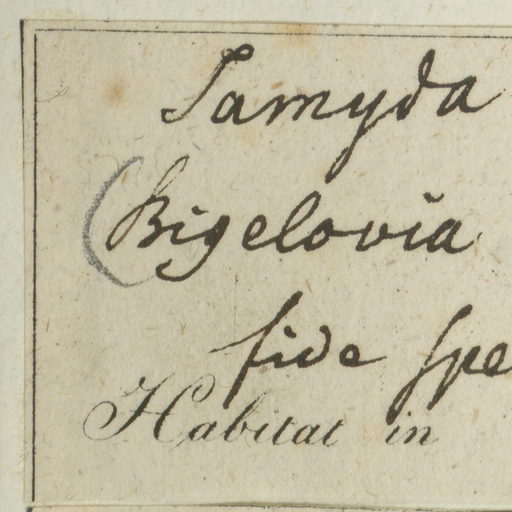 Samyda
(Bigelovia
fide spe
Habitat in